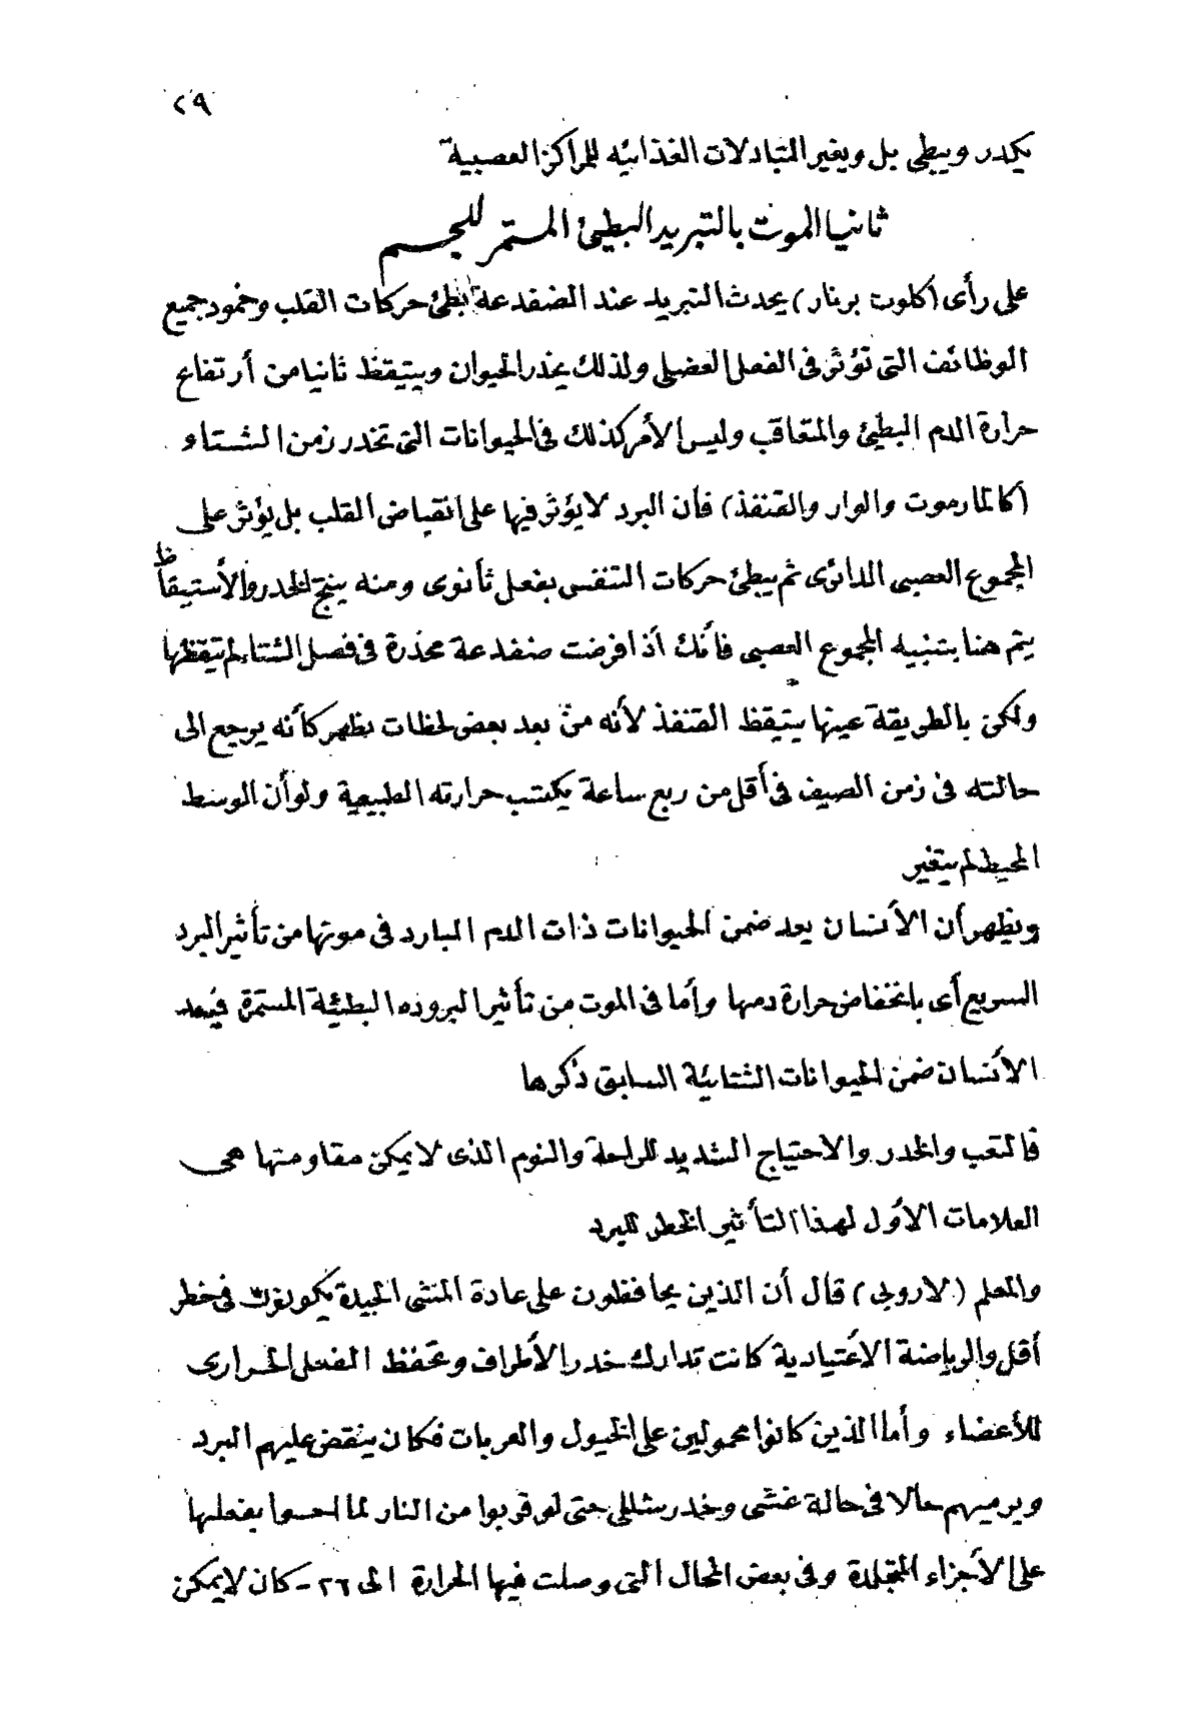 ٢٩
يكدر ويبطئ بل ويغير المتبادلات الغذائيه للمراكز العصبية
ثانيا الموت بالتبريد البطيئ المستمر للجسم
على رأى (كلوت برنار) يحدث التبريد عند الضفدعة بطئ حركات القلب وخمود جميع
الوظائف التى تؤثر فى الفعل العضلى ولذلك يخدر الحيوان ويتيقظ ثانيا من أرتفاع
حرارة الدم البطيئ والمتعاقب وليس الأمر كذلك فى الحيوانات التى تخدر زمن الشتاء
(كالمارموت والوار والقنفذ) فأن البرد لا يؤثر فيها على انقباض القلب بل يؤثر على
المجموع العصبى الدائرى ثم يبطئ حركات التنفس بفعل ثانوى ومنه ينتج الخدر والأستيقاظ
يتم هنا بتنبيه المجموع العصبى فأنك أذا فرضت ضفدعة مخدرة فى فصل الشتاء لم تيقظها
ولكن بالطريقة عينها يتيقظ القنفذ لأنه من بعد بعض لحظات يظهر كأنه يرجع الى
حالته فى زمن الصيف فى أقل من ربع ساعة يكتسب حرارته الطبيعية ولو أن الوسط
المحيط لم يتغير
ويظهر أن الأنسان يعد ضمن الحيوانات ذات الدم البارد فى موتها من تأثير البرد
السريع أى بانخفاض حرارة دمها وأما فى الموت من تأثير البروده البطيئة المستمرة فيعد
الأنسان ضمن الحيوانات الشتائية السابق ذكرها
فالتعب والخدر والاحتياج الشديد للراحة والنوم الذى لا يمكن مقاومتها هى
العلامات الأول لهذا التأثير الخطر للبرد
والمعلم (لاروبى) قال أن الذين يحافظون على عادة المشى الجيدة يكونون فى خطر
أقل والرياضة الأعتيادية كانت تدارك خدر الأطراف وتحفظ الفعل الحرارى
للأعضاء وأما الذين كانوا محمولين على الخيول والعربات فكان ينقض عليهم البرد
ويرميهم حالا فى حالة غشى وخدر شللى حتى لو قربوا من النار لما احسوا بفعلها
على الأجزاء المتجلدة وفى بعض المحال التى وصلت فيها الحرارة الى ٢٦ - كان لا يمكن